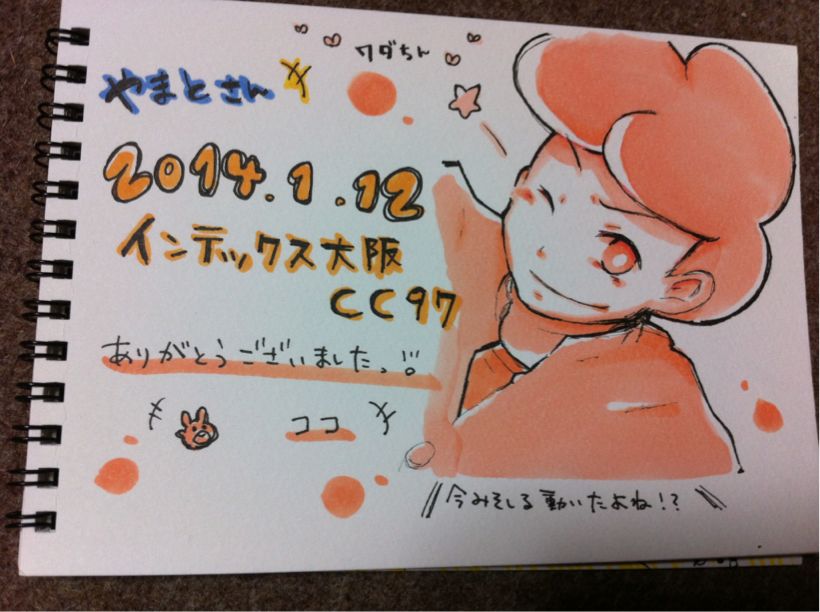 ワダちん
やまとさん
2014.1.12
インデックス大阪
CC97
ありがとうございましたっ!!
ココ
今みそしる動いたよね!?